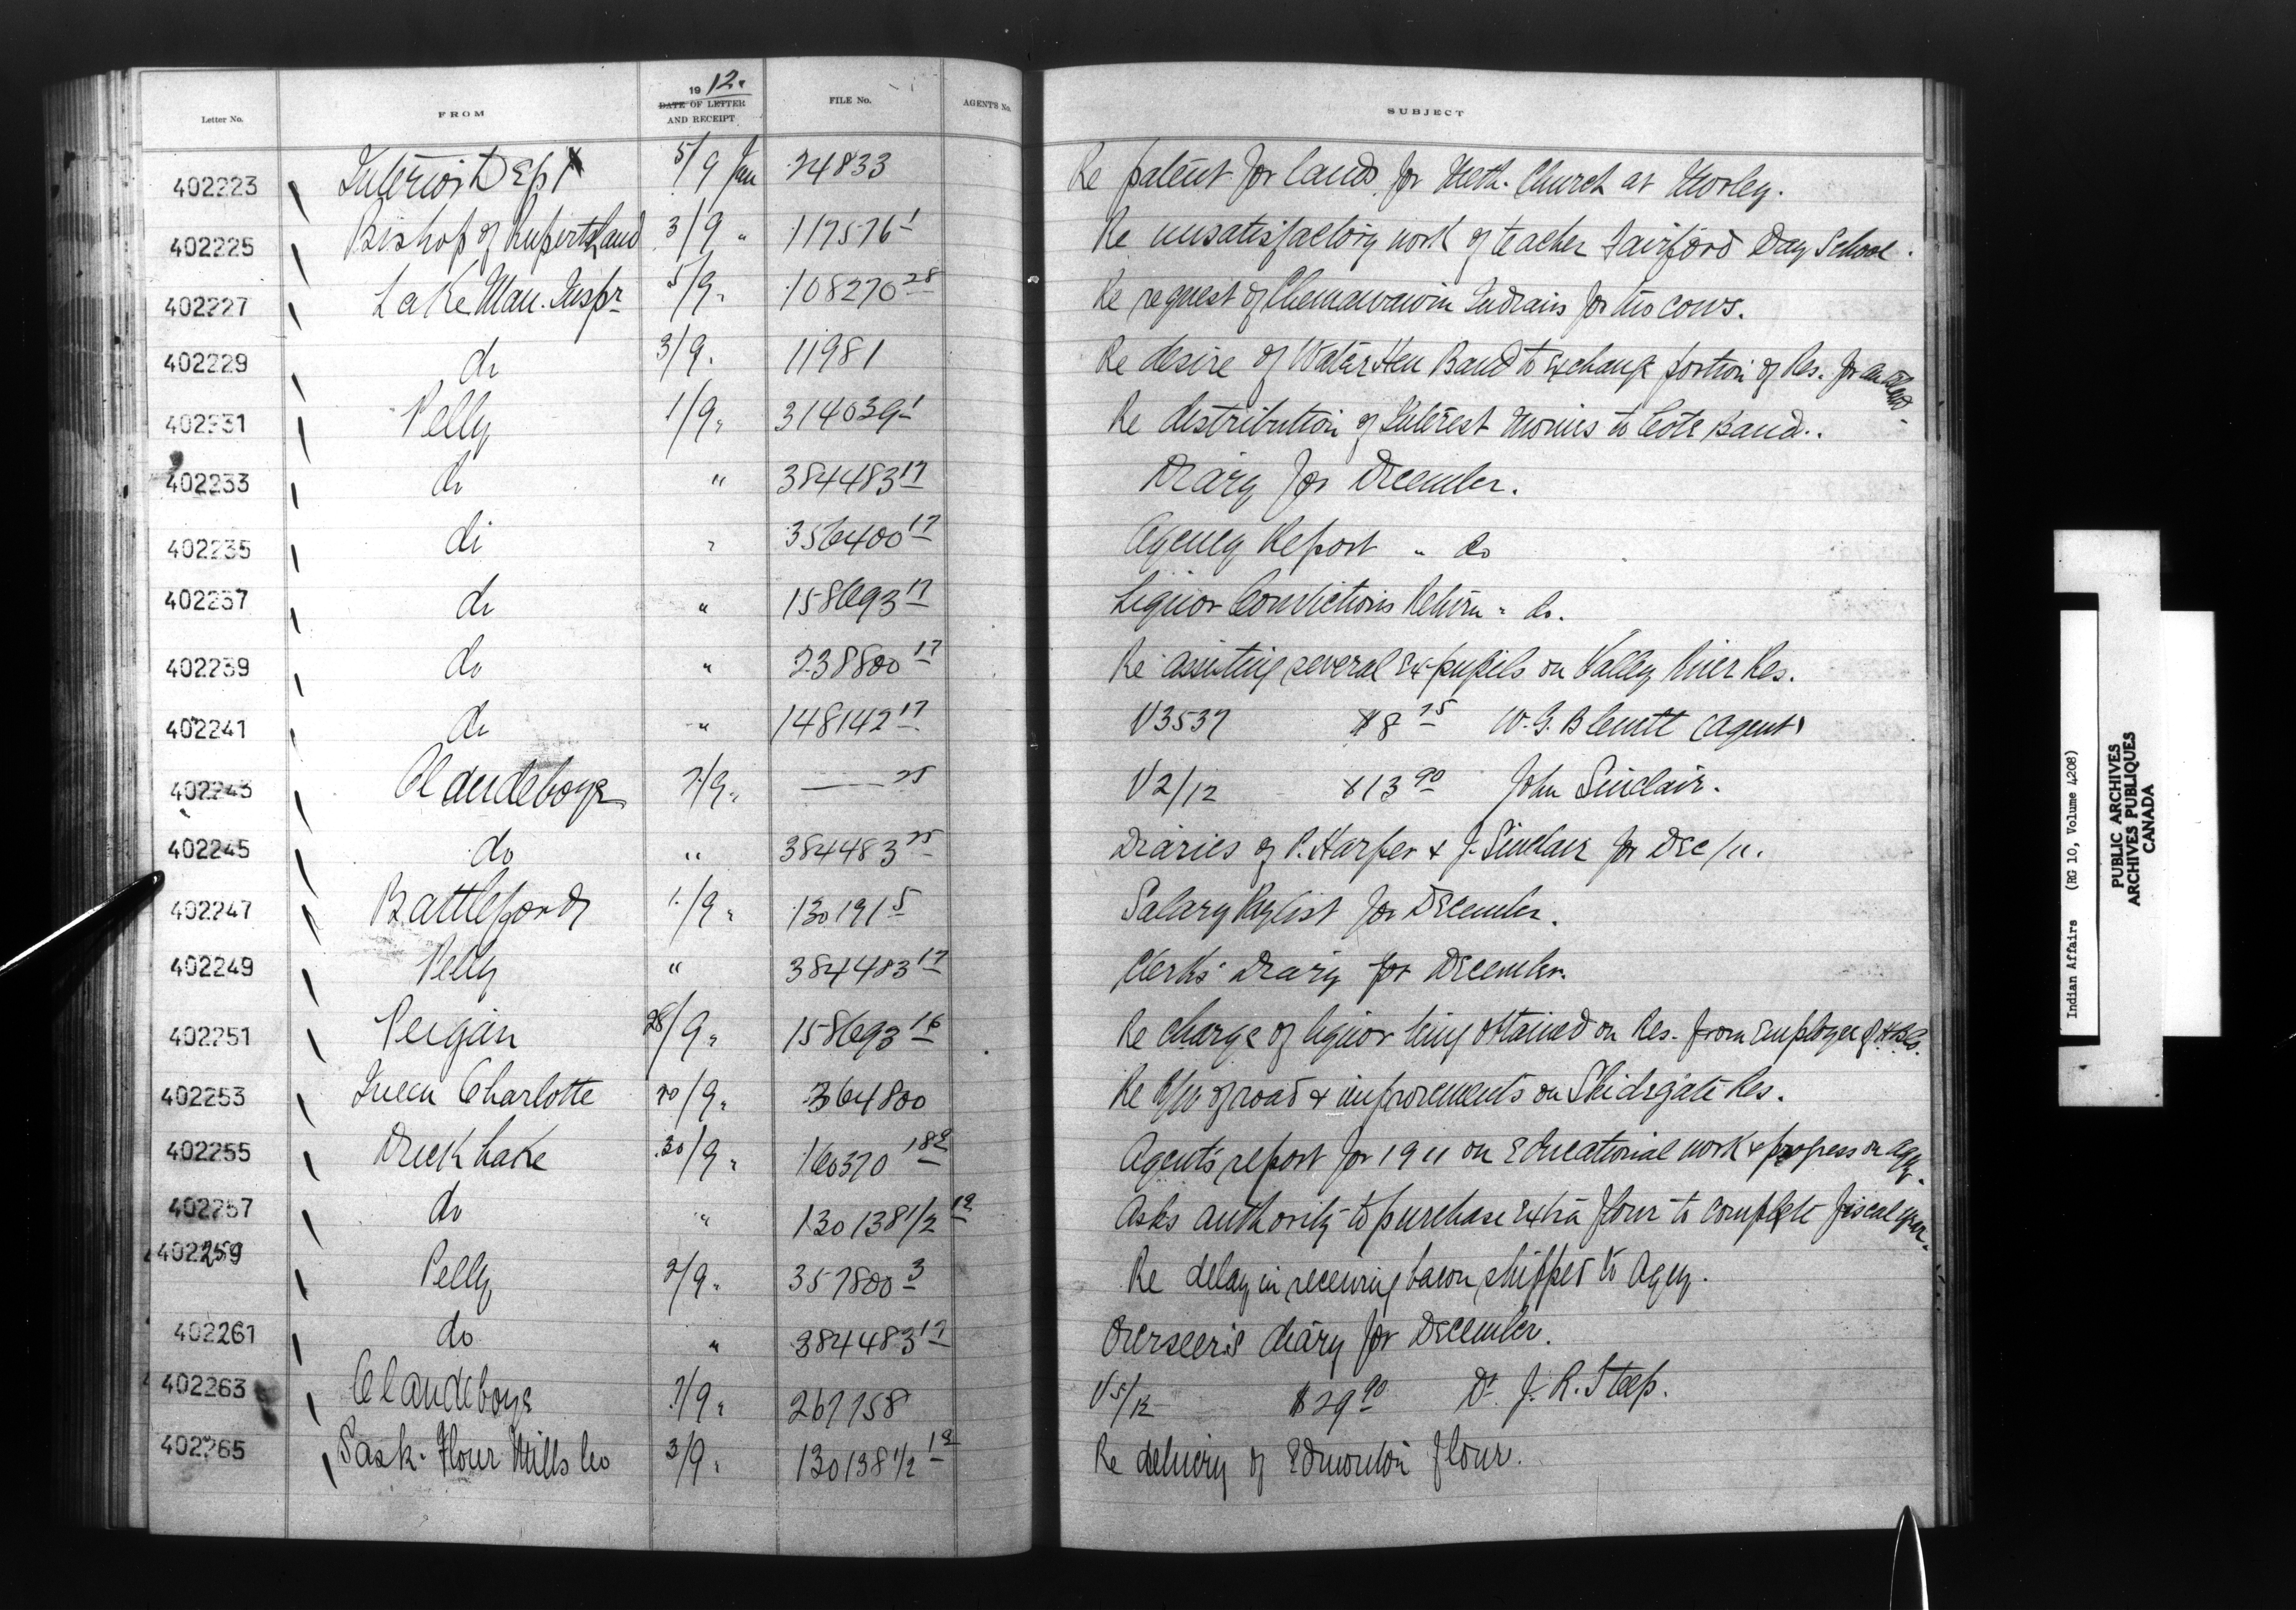 1912.
Letter No. FROM DATE OF LETTER AND RECEIPT FILE No. AGENTS No. SUBJECT
402223 Interior Dept 5/9 Jan 24833 Re patent for lands for Meth. Church at Morley.
402225 Bishop of Rupertsland 3/9 " 117576 1 Re unsatisfactory work of teacher Fairford Day School.
402227 Lake Man. Inspr 5/9 " 108270 28 Re request of Chemawawin Indians for two cows.
402229 do 3/9 " 11981 Re desire of Water Hen Band to exchange portion of Res. for
402231 Pelly 1/9 " 314039 1 Re distribution of Interest Monies to Cote Band.
402233 do " 384483 17 Diary for December.
402235 do " 356400 17 Agency Report " do
402237 do " 158693 17 Liquor Convictions Return " do.
402239 do " 238800 17 Re assisting several Ex pupils on Valley River Res.
402241 do " 148142 17 V3537 $8 75 W. G. Blewett (agent)
402243 Clandeboye 7/9 " — 25 V2/12 $13 90 John Sinclair.
402245 do " 384483 25 Diaries of P. Harper & J. Sinclair for Dec/11.
402247 Battleford 1/9 " 130191 5 Salary Paylist for December.
402249 Pelly " 384483 17 Clerks' Diary for December.
402251 Peigan 28/9 " 158693 16 Re charge of liquor being obtained on Res. from Employee of H.B.Co.
402253 Queen Charlotte 20/9 " 364800 Re of road & improvements on Skidegate Res.
402255 Duck Lake 30/9 " 160370 Agents report for 1911 on Educational work & progress on Agy.
402257 do " 130138 1/2 12 Asks authority to purchase Extra flour to complete fiscal year.
402259 Pelly 2/9 " 357800 3 Re delay in receiving bacon shipped to Agcy.
402261 do " 384483 17 Overseer's diary for December.
402263 Clandeboye 7/9 " 267758 V5/12 $29 90 Dr. J. R. Steep.
402265 Sask. Flour Mills Co 3/9 " 130138 1/2 12 Re delivery of Edmonton flour.
Indian Affairs (RG 10, Volume 4208)
PUBLIC ARCHIVES
ARCHIVES PUBLIQUES
CANADA